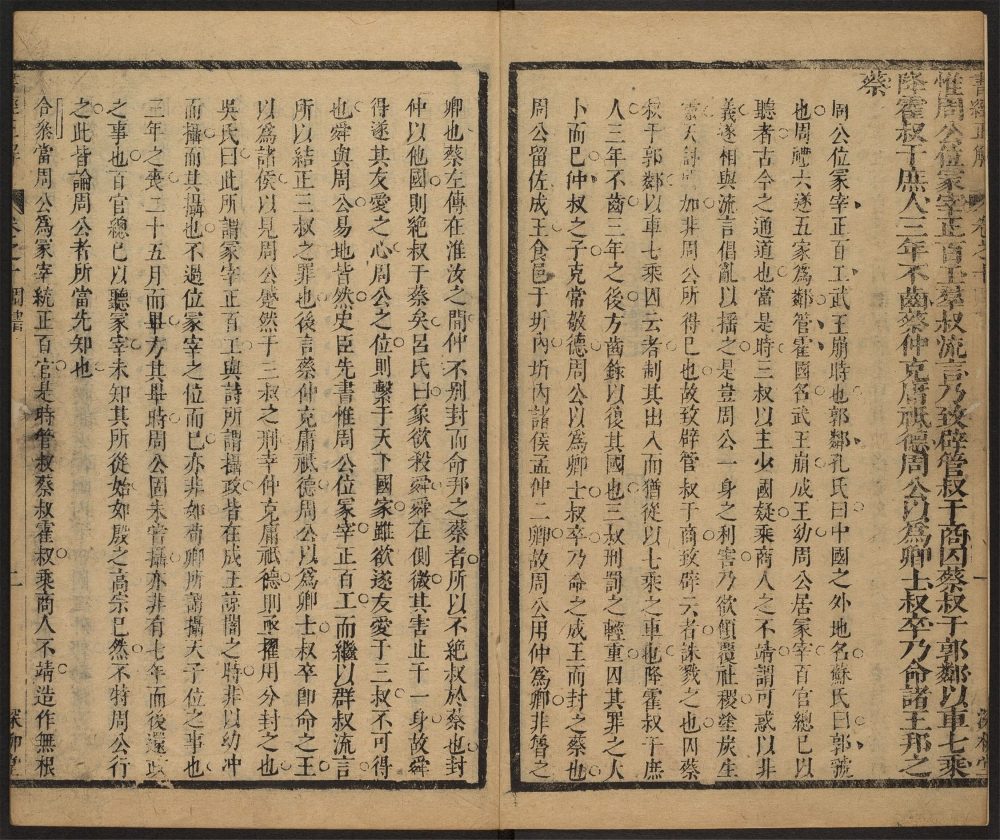 書經正解
卷之十
深柳堂
惟周公位冢宰正百工羣叔流言乃致辟管叔于商囚蔡叔于郭鄰以車七乘
降霍叔于庶人三年不齒蔡仲克庸祗德周公以爲卿士叔卒乃命諸王邦之
蔡
周公位冢宰正百工武王崩時也郭鄰孔氏曰中國之外地名蘇氏曰郭虢
也周禮六遂五家爲鄰管霍國名武王崩成王幼周公居冢宰百官總己以
聽者古今之通道也當是時三叔以主少國疑乘商人之不靖謂可惑以非
義遂相與流言倡亂以搖之是豈周公一身之利害乃欲傾覆社稷塗炭生
靈天討所加非周公所得已也故致辟管叔于商致辟云者誅戮之也囚蔡
叔于郭鄰以車七乘囚云者制其出入而猶從以七乘之車也降霍叔于庶
人三年不齒三年之後方齒錄以復其國也三叔刑罰之輕重因其罪之大
小而已仲叔之子克常敬德周公以爲卿士叔卒乃命之成王而封之蔡也
周公留佐成王食邑于圻內圻內諸侯孟仲二卿故周公用仲爲卿非魯之
卿也蔡左傳在淮汝之間仲不別封而命邦之蔡者所以不絶叔於蔡也封
仲以他國則絶叔于蔡矣呂氏曰象欲殺舜舜在側微其害止于一身故舜
得遂其友愛之心周公之位則繫于天下國家雖欲遂友愛于三叔不可得
也舜與周公易地皆然史臣先書惟周公位冢宰正百工而繼以群叔流言
所以結正三叔之罪也後言蔡仲克庸祗德周公以爲卿士叔卒卽命之王
以爲諸侯以見周公蹙然于三叔之刑幸仲克庸祗德則亟擢用分封之也
吳氏曰此所謂冢宰正百工與詩所謂攝政皆在成王諒闇之時非以幼沖
而攝而其攝也不過位冢宰之位而已亦非如荀卿所謂攝天子位之事也
三年之喪二十五月而畢方其畢時周公固未嘗攝亦非有七年而後還政
之事也百官總己以聽冢宰未知其所從始如殷之高宗已然不特周公行
之此皆論周公者所當先知也
合叅當周公爲冢宰統正百官是時管叔蔡叔霍叔乘商人不靖造作無根
卷之十周書
二
深柳堂